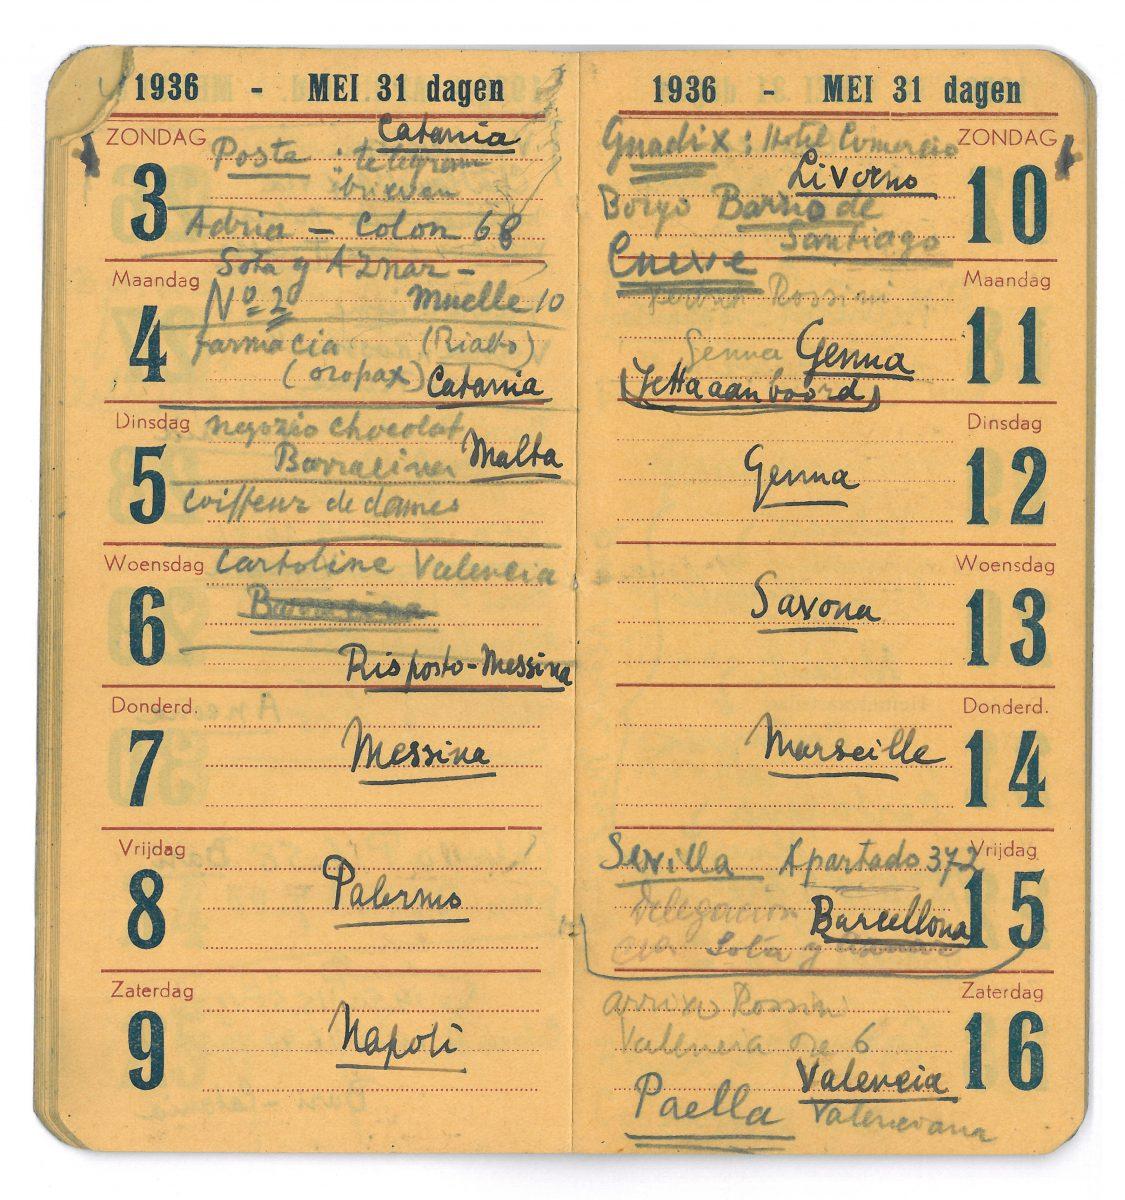 1936 - MEI 31 dagen
ZONDAG
3
Catania
Poste : telegram
brieven
Adria - Colon 68
Maandag
4
Sota y Aznar -
Nº 20 Muelle 10
farmacia (Rialto)
(oropax) Catania
Dinsdag
5
negozio chocolat
Malta
Coiffeur de dames
Woensdag
6
Cartoline Valencia
Risposto-Messina
Donderd.
7
Messina
Vrijdag
8
Palermo
Zaterdag
9
Napoli
1936 - MEI 31 dagen
ZONDAG
10
Guadix : Hotel Comercio
Livorno
Borgo Barrio de
Santiago
Cueve
Maandag
11
Rossini
Genua Genua
(Jetta aan boord)
Dinsdag
12
Genua
Woensdag
13
Savona
Donderd.
14
Marseille
Vrijdag
15
Sevilla Apartado 372
Delegacion Barcellona
cia Sota y Aznar
Zaterdag
16
arrivo Rossini
Valencia ore 6
Valencia
Paella Valencana